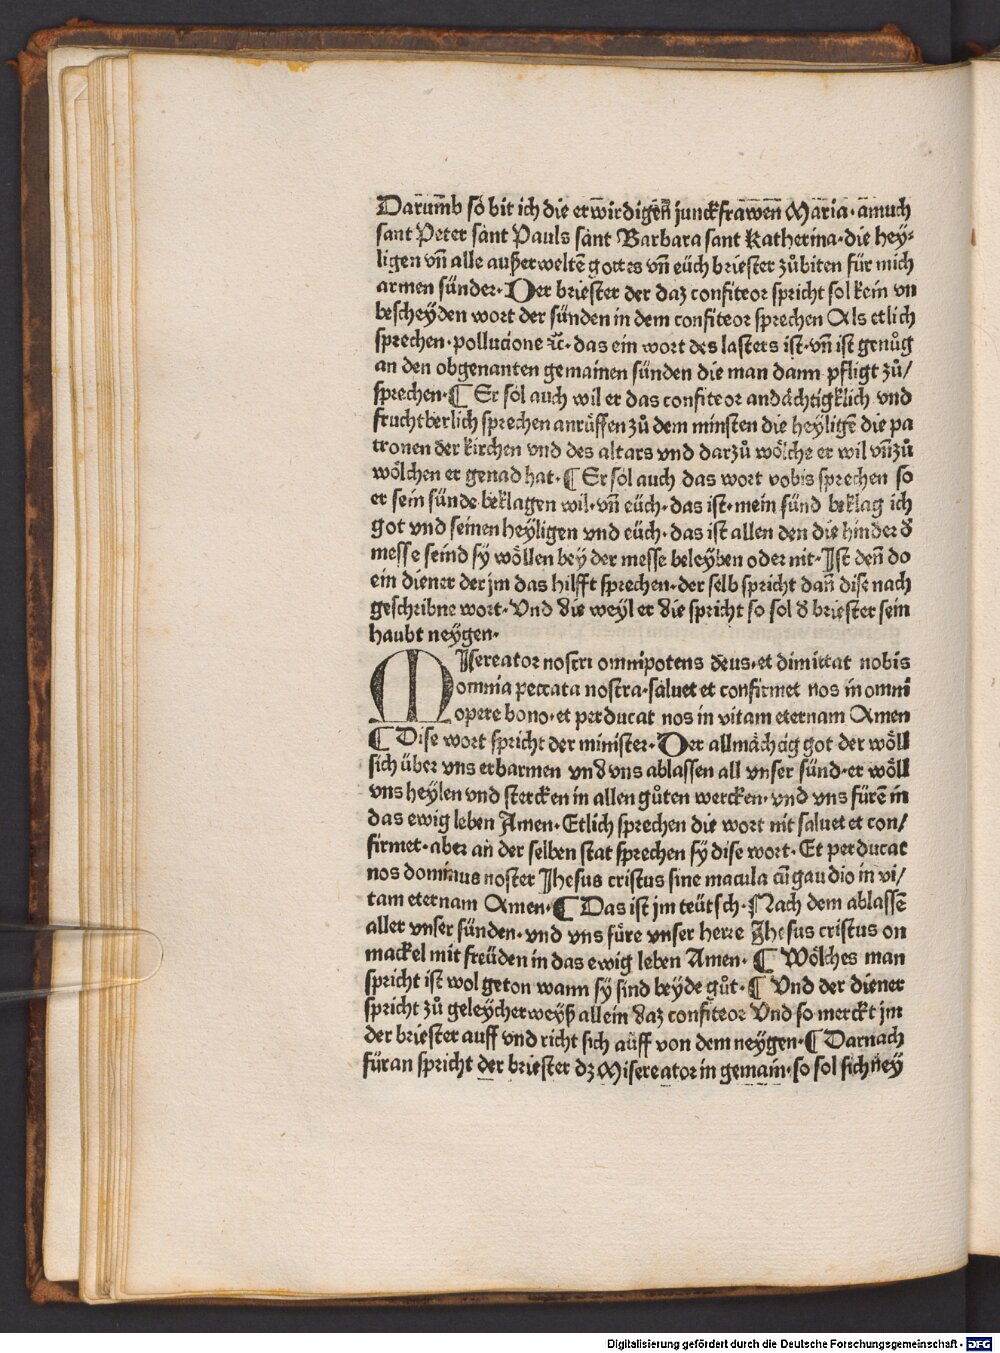 Darumb so bit ich die erwirdigen̄ junckfrawen Maria· auch
sant Peter sant Pauls sant Barbara sant Katherina· die hey⸗
ligen vn̄ alle außerweltē gottes vn̄ eüch briester zůbiten für mich
armen sünder· Der briester der daz confiteor spricht sol kein vn
bescheyden wort der sünden in dem confiteor sprechen Als etlich
sprechen· pollucione ꝛc̄· das ein wort des lasters ist· vn̄ ist genůg
an den obgenanten gemainen sünden die man dann pfligt zů/
sprechen· ¶ Er sol auch wil er das confiteor andächtigklich vnd
fruchtberlich sprechen anrůffen zů dem minsten die heyligē die pa
tronen der kirchen vnd des altars vnd darzů wölche er wil vn̄ zů
wölchen er genad hat· ¶ Er sol auch das wort vobis sprechen so
er sein sünde beklagen wil· vn̄ eüch· das ist· mein sünd beklag ich
got vnd seinen heyligen vnd eüch· das ist allen den die hinder d̄
messe seind sy wöllen bey der messe beleyben oder nit· Ist den̄ do
ein diener der jm das hilfft sprechen· der selb spricht dan̄ dise nach
geschribne wort· Vnd die weyl er die spricht so sol d̄ briester sein
haubt neygen·
MIsereator nostri omnipotens deus· et dimittat nobis
omnia peccata nostra· saluet et confirmet nos in omni
opere bono· et perducat nos in vitam eternam Amen
¶ Dise wort spricht der minister· Der allmächtig got der wöll
sich über vns erbarmen vnd vns ablassen all vnser sünd· er wöll
vns heylen vnd stercken in allen gůten wercken· vnd vns fürē in
das ewig leben Amen· Etlich sprechen die wort nit saluet et con/
firmet· aber an der selben stat sprechen sy dise wort· Et perducat
nos dominus noster Jhesus cristus sine macula cū gaudio in vi/
tam eternam Amen· ¶ Das ist jm teütsch· Nach dem ablassē
aller vnser sünden· vnd vns füre vnser herre Jhesus cristus on
mackel mit freüden in das ewig leben Amen· ¶ Wölches man
spricht ist wol geton wann sy sind beyde gůt· ¶ Vnd der diener
spricht zů geleycher weyß allein daz confiteor Vnd so merckt jm
der briester auff vnd richt sich auff von dem neygen· ¶ Darnach
füran spricht der briester dz Misereator in gemain· so sol sich ney
Digitalisierung gefördert durch die Deutsche Forschungsgemeinschaft - DFG